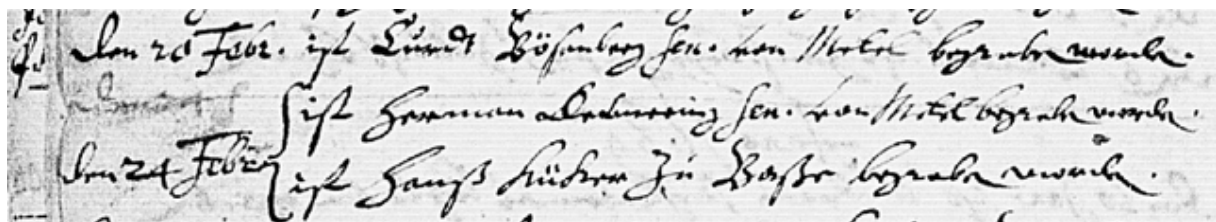 den 20 Febr. ist Curdt Bösenberg sen. von Metel begraben worden.
ist Herman Detmering sen. von Metel begraben worden.
den 24 Febr. ist Hanß Küker zu Baße begraben worden.